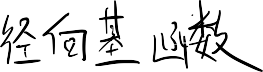 径向基函数